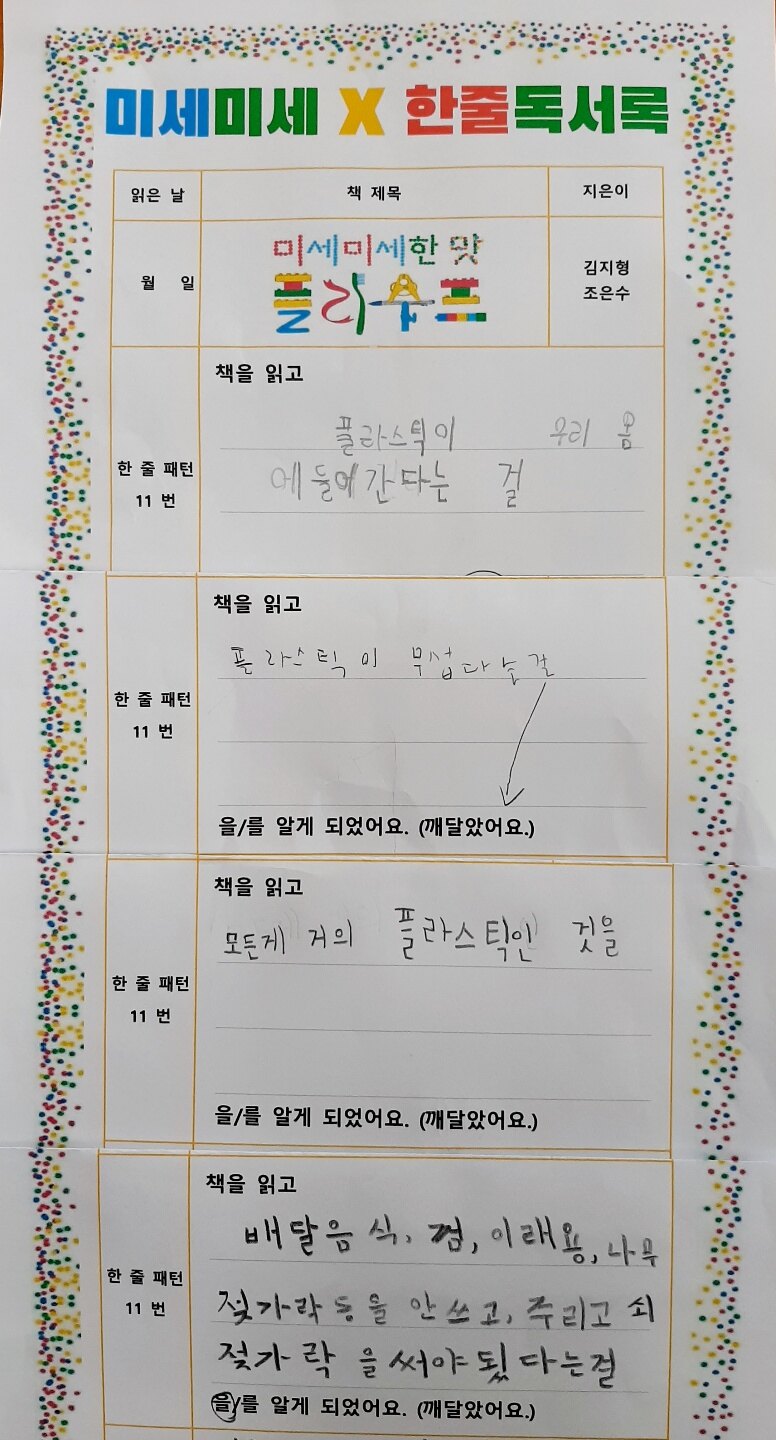 미세미세 X 한줄독서록
읽은 날 책 제목 지은이
월 일
미세미세한 맛
플라수프
김지형
조은수
책을 읽고
한 줄 패턴
11 번
플라스틱이 우리 몸
에 들에간다는 걸
책을 읽고
한 줄 패턴
11 번
플라스틱이 무섭다는걸
을/를 알게 되었어요. (깨달았어요.)
책을 읽고
한 줄 패턴
11 번
모든게 거의 플라스틱인 것을
을/를 알게 되었어요. (깨달았어요.)
책을 읽고
한 줄 패턴
11 번
배달음식, 껌, 이래용, 나무
젖가락 등을 안쓰고, 주리고 쇠
젖가락을 써야됬다는걸
을/를 알게 되었어요. (깨달았어요.)